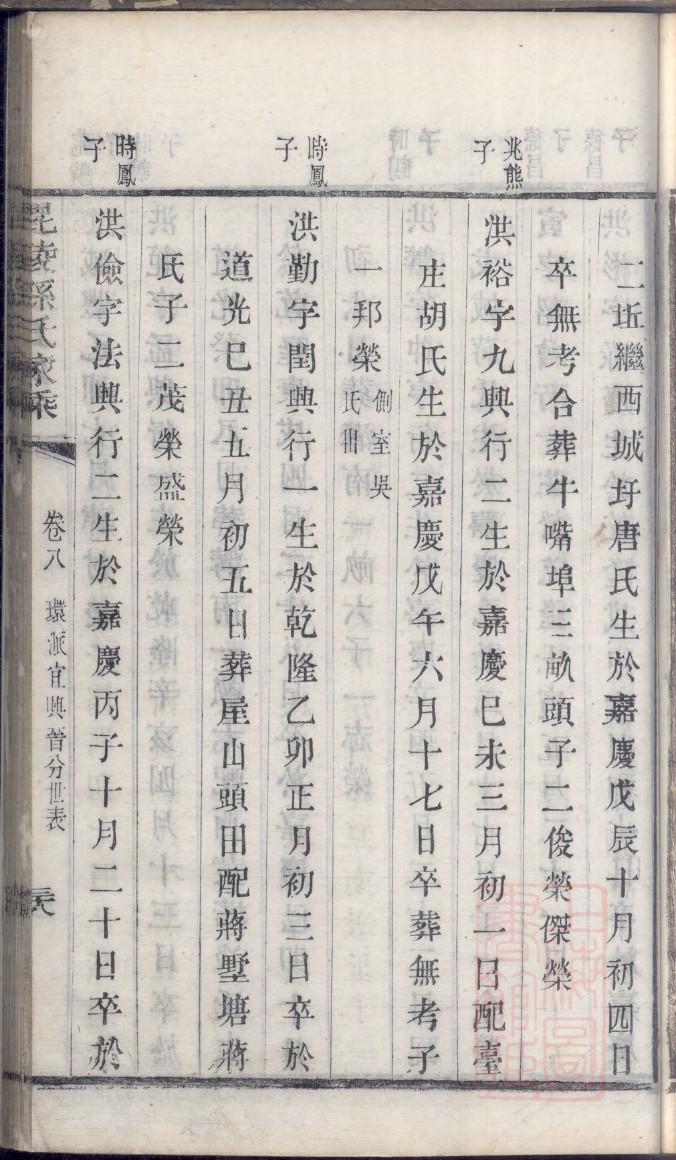 二坵繼西城圩唐氏生於嘉慶戊辰十月初四日
卒無考合葬牛嘴埠三畝頭子二俊榮傑榮
兆熊子
洪裕字九興行二生於嘉慶巳未三月初一日配臺
庄胡氏生於嘉慶戊午六月十七日卒葬無考子
一邦榮 側室吳氏出
時鳳子
洪勤字閏興行一生於乾隆乙卯正月初三日卒於
道光巳丑五月初五日葬屋山頭田配蔣墅塘蔣
氏子二茂榮盛榮
時鳳子
洪儉字法興行二生於嘉慶丙子十月二十日卒於
毘陵孫氏家乘
卷八 環派宜興晉分世表